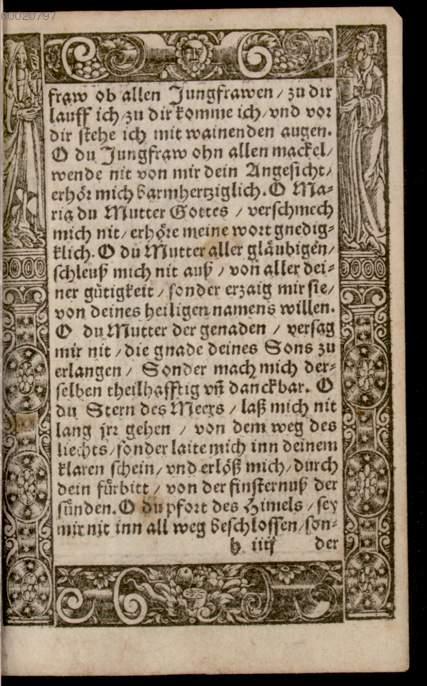 60020797
fraw ob allen Jungfrawen / zu dir
lauff ich / zu dir komme ich / vnd vor
dir stehe ich mit wainenden augen.
O du Jungfraw ohn allen mackel /
wende nit von mir dein Angesicht /
erhör mich barmhertziglich. O Ma-
ria du Mutter Gottes / verschmech
mich nit / erhöre meine wort gnedig-
klich. O du Mutter aller gläubigen /
schleuß mich nit auß / von aller dei-
ner gütigkeit / sonder erzaig mir sie /
von deines heiligen namens willen.
O du Mutter der genaden / versag
mir nit / die gnade deines Sons zu
erlangen / Sonder mach mich der-
selben theilhafftig vñ danckbar. O
du Stern des Meers / laß mich nit
lang jrr gehen / von dem weg des
liechts / sonder laite mich inn deinem
klaren schein / vnd erlöß mich / durch
dein fürbitt / von der finsternuß der
sünden. O du pfort des Himels / sey
mir nit inn all weg beschlossen / son-
h iiij der